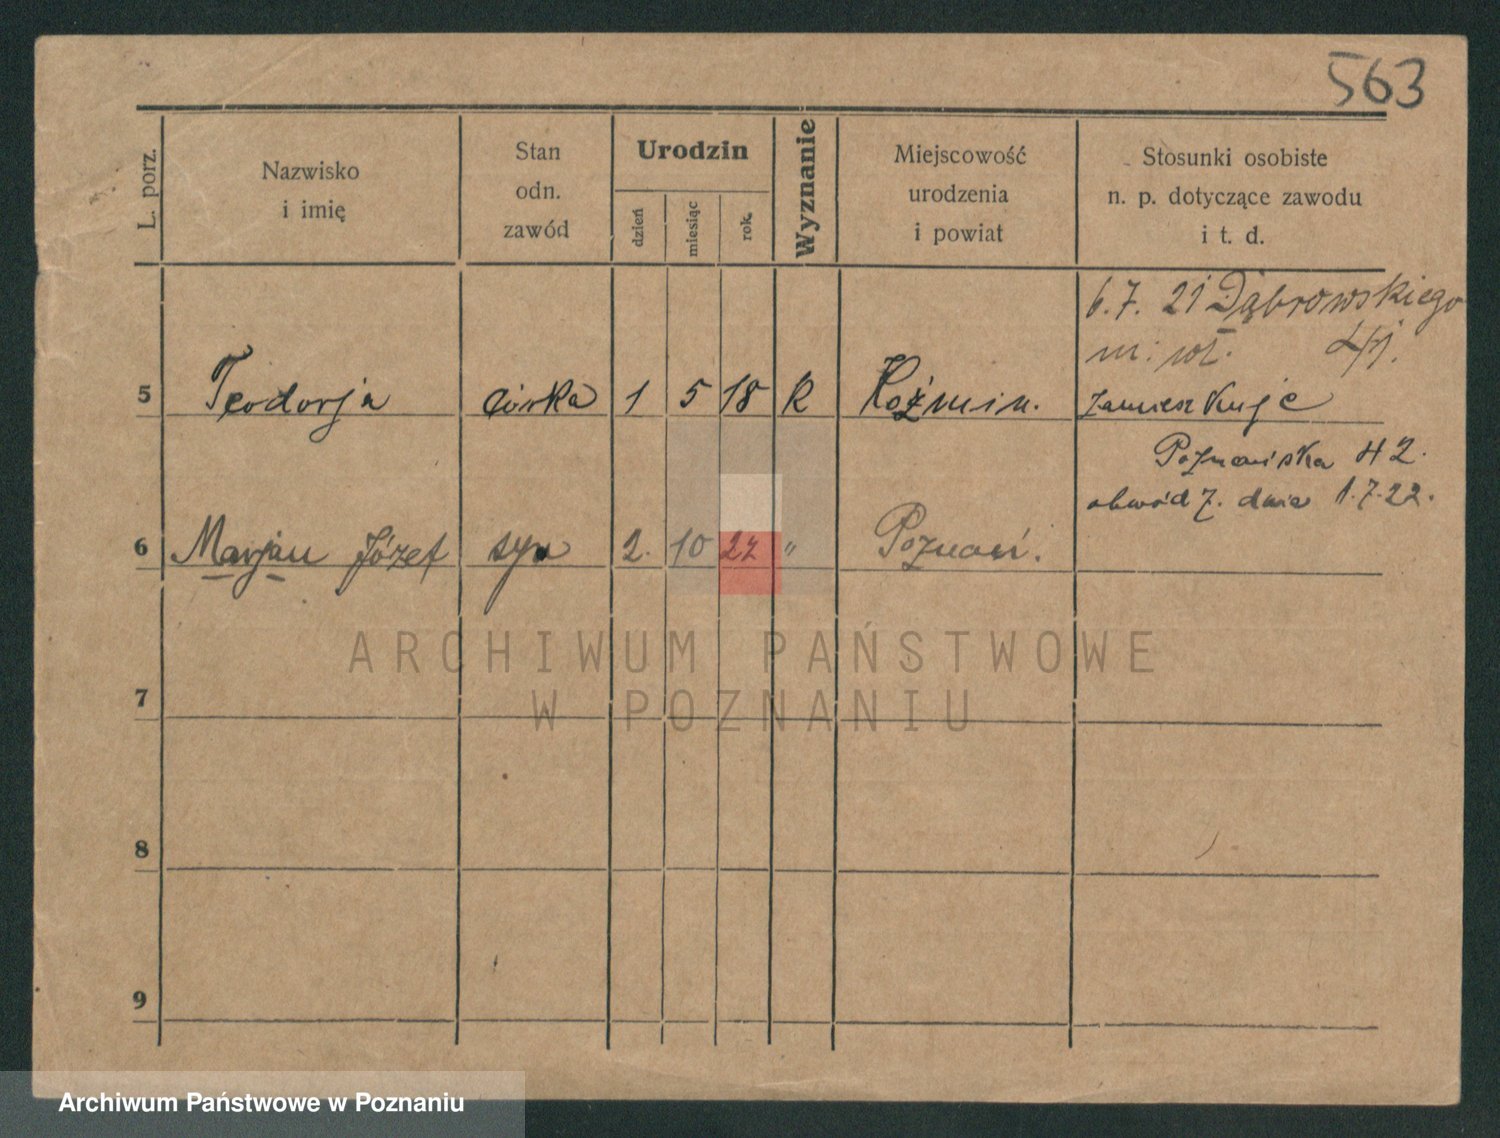 563
L. porz.
Nazwisko
i imię
Stan
odn.
zawód
Urodzin
dzień
miesiąc
rok.
Wyznanie
Miejscowość
urodzenia
i powiat
Stosunki osobiste
n. p. dotyczące zawodu
i t. d.
6.7. 21 Dąbrowskiego
m. wł.
5 Teodorja córka 1 5 18 K Koźmin. zamieszkuje
Poznańska 42.
obwód 7. dnia 1.7.22.
6 Marjan Józef syn 2. 10 22 " Poznań.
ARCHIWUM PAŃSTWOWE
W POZNANIU
7
8
9
Archiwum Państwowe w Poznaniu